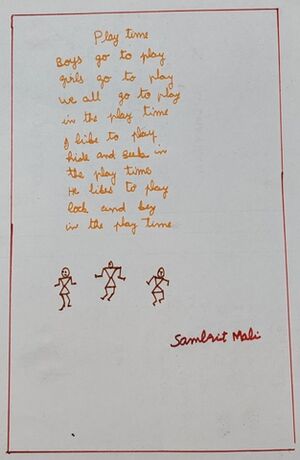 Play time
Boys go to play
girls go to play
we all go to play
in the play time
I like to play
hide and seek in
the play time
He likes to play
lock and key
in the play time
Sambrit Mali